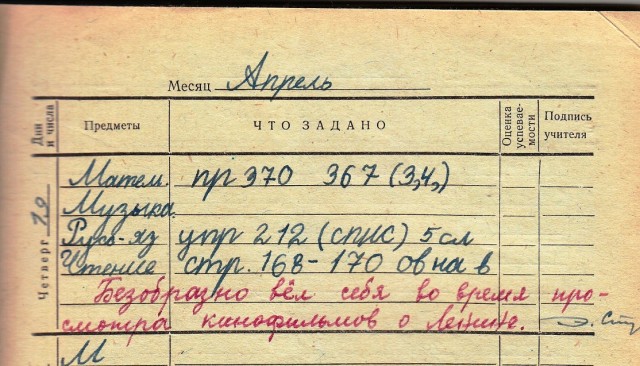 Месяц Апрель
Дни и числа Предметы ЧТО ЗАДАНО Оценка успевае-мости Подпись учителя
Четверг
Матем. пр 370 367 (3,4,)
Музыка.
Русс-яз упр 212 (спис) 5 сл
Чтение стр. 168-170 ов на в
Безобразно вёл себя во время про-
смотра канофильмов о Ленине.
М